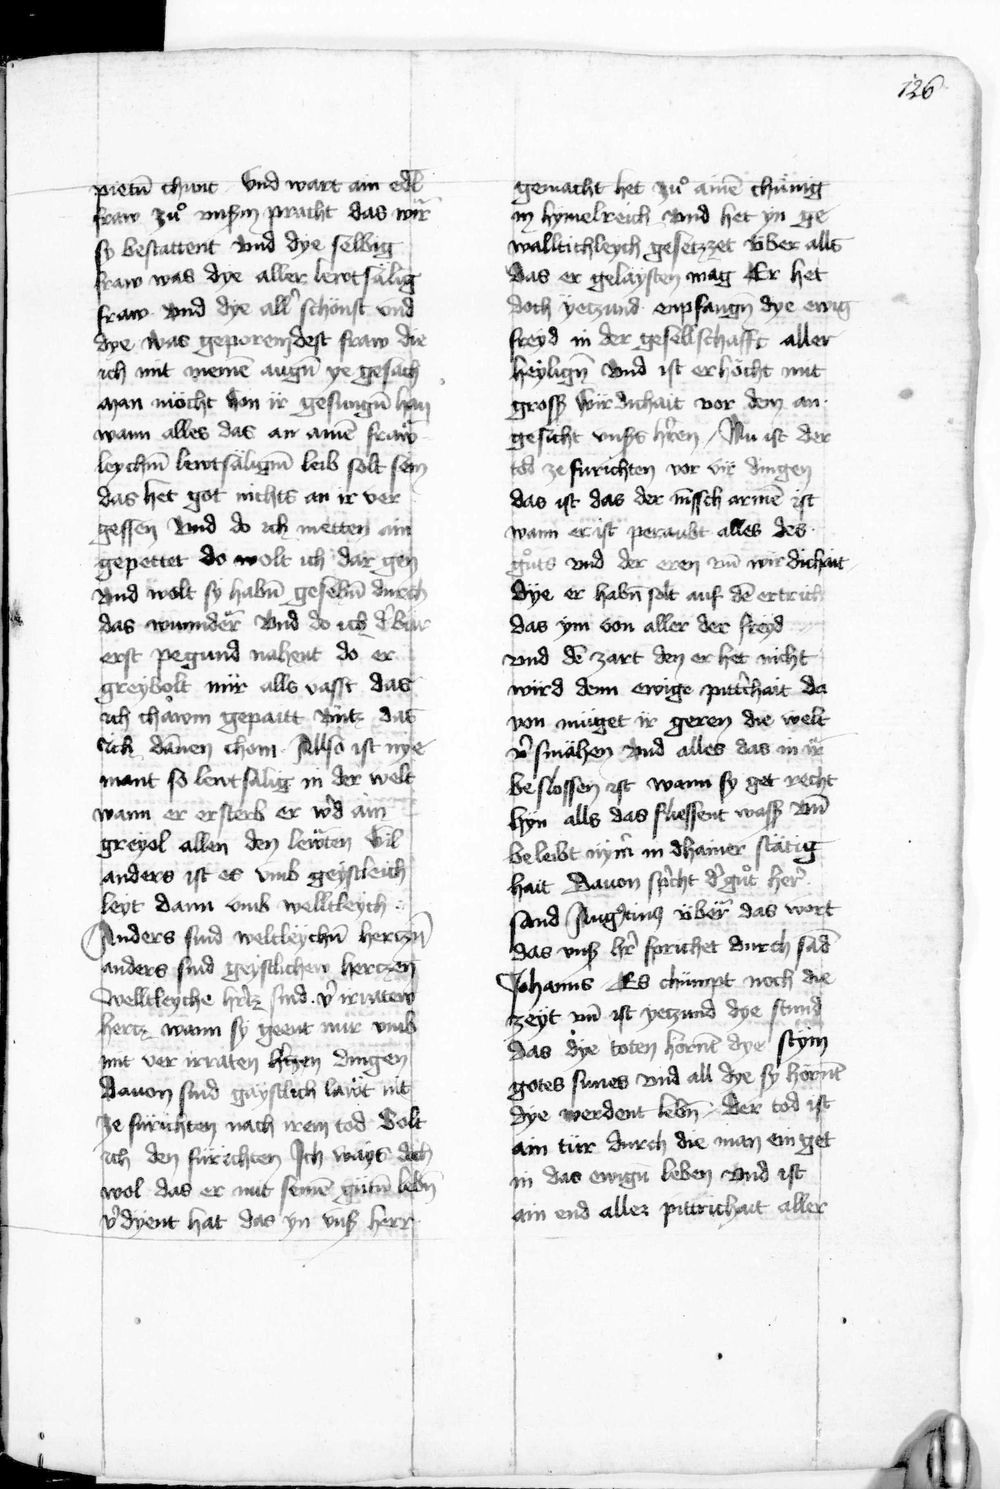 126
pietn̄ chunt Vnd wart ain edl̄
fraw zuͦ vnßm pracht das wir
sy bestattent Vnd dye selbig
fraw was dye aller lewtsälig
fraw Vnd dye all̄ schönst vnd
dye was geporenisdest fraw die
ich mit meinē augn̄ ye gesach
Man möcht von ir gesungn̄ han
wann alles das an ainē fraw
leychm̄ lewtsäligm̄ leib solt sein
das het got nichts an ir ver
gessen Vnd do ich metten ain
gepettet do wolt ich dar gen
Vnd wolt sy habn̄ gesehn̄ durch
das wunnder Vnd do ich
erst pegund nahent do er
greybolt mir alls vasst das
ich chawm gepaitt vntz das
ich dānen chom Also ist nye
mant so lewtsälig in der welt
wann er ersterb er wd̄ ain
greyol allen den lewten Vil
anders ist es vmb geystleich
leyt dann vmb welltleych
Anders sind weltleychn̄ hertzn̄
anders sind geystlichew hertzen
Welltleyche hr̄tz sind v̄ irratew
hertz wann sy geent nur vmb
mit ver irraten dingen
Dauon sind gaystlich läwt nit
ze fürichten nach irem tod Solt
ich den fürichten Ich wayt dich
wol das er mit seinē gutn̄ lebn̄
v̄dyent hat das yn vnß herr
gemacht het zuͦ ainē chünig
in hymelreich Vnd het yn ge
walltichleych gesetzzet über alls
das er gelaysten mag Er het
doch yetzund enpfangn̄ dye ewig
freyd in der gesellschafft aller
heylign̄ Vnd ist erhöcht mit
grosß wirdichait vor dem an
gesicht vnßs hr̄en Nu ist der
tod ze fürichten vor vir dingen
das ist das der mēsch armē ist
wann er ist peraubt alles des
guͦts vnd der eren vn̄ wirdichait
Dye er habn̄ solt auf dē ertrich
das ym von aller der freyd
vnd dē zart den er het nicht
wird denn ewige pittr̄chait da
von müget ir geren die welt
v̄smähen Vnd alles das in ir
beslossen ist wann sy get recht
hyn alls das fliessent wasß Vn̄
beleibt nym̄ in dhainer stätig
hait Dauon spr̄cht d̄ guͦt her̄
sand Augͣtinꝰ über das wort
das vnß hr̄ sprichet durch sād
Johanns Es chümpt noch die
zeyt vn̄ ist yetzund dye stund
das dye toten hörnt dye stym
gotes sunes vnd all dye sy hörnt
dye werdent lebn̄ Der tod ist
ain tür durch die man ein get
in das ewign̄ leben Vnd ist
ain end aller pittrichait aller